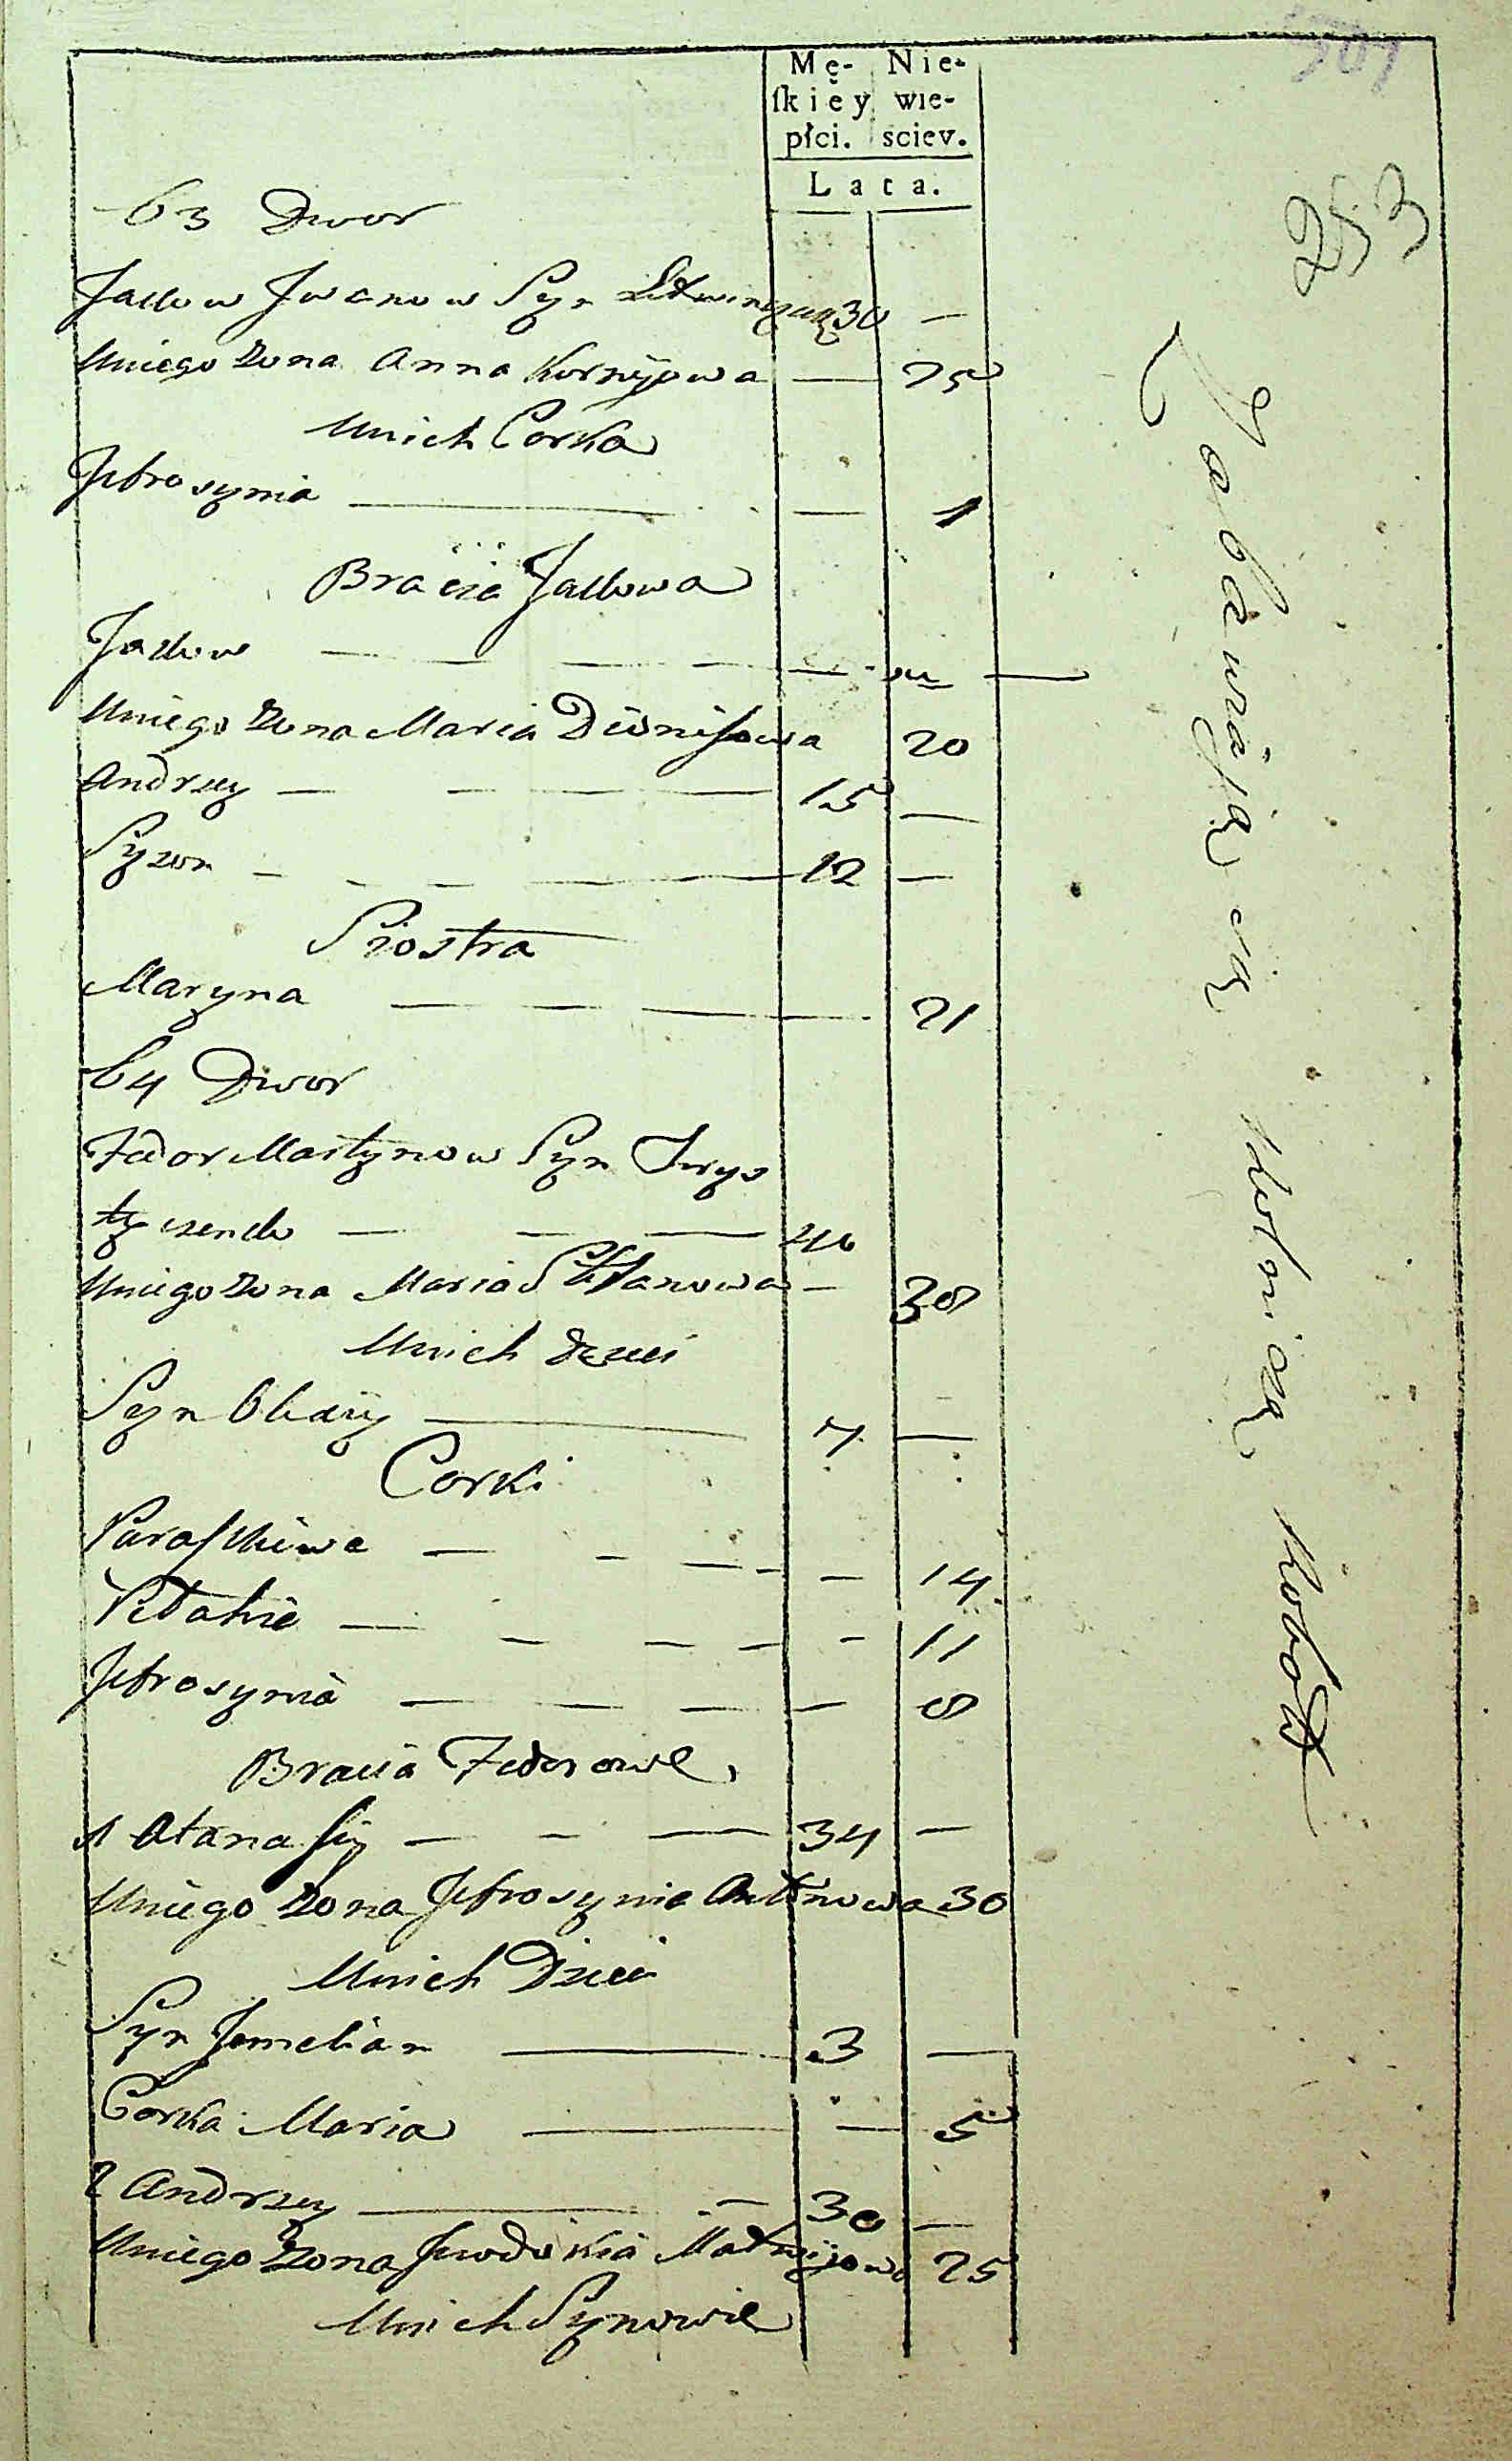 501
253
Mę- Nie-
ſkiey wie-
płci. sciey.
Lata.
63 Dwor
Jakow Jwanow Syn 30 —
Uniego Zona Anna Kornijowa — 25
Unich Corka
Jefrosynia — — 1
Bracia Jakowa
Jakow — — — — —
Uniego Zona Maria Dionisowa 20
Andrzey — — — 15 —
Syzon — — — — 12 —
Siostra
Maryna — — 21
64 Dwor
Fedor Martynow Syn
— — — 40
Uniego Zona Maria Stefanowa — 38
Unich dzieci
Syn Olexiy — 7 —
Corki
Paraskiewa — — — — — 14
Petahia — — — — — 11
Jefrosynia — — — — 8
Bracia Fedorowe
1 Atanasiy — — — 34 —
Uniego Zona Jefrosynia Antonowa 30
Unich Dzieci
Syn Jemelian — 3 —
Corka Maria — — 5
2 Andrzey — — 30 —
Uniego Zona Jewdokia Matwijowa 25
Unich Synowie
Zabawiają się Rolniczą Robotą